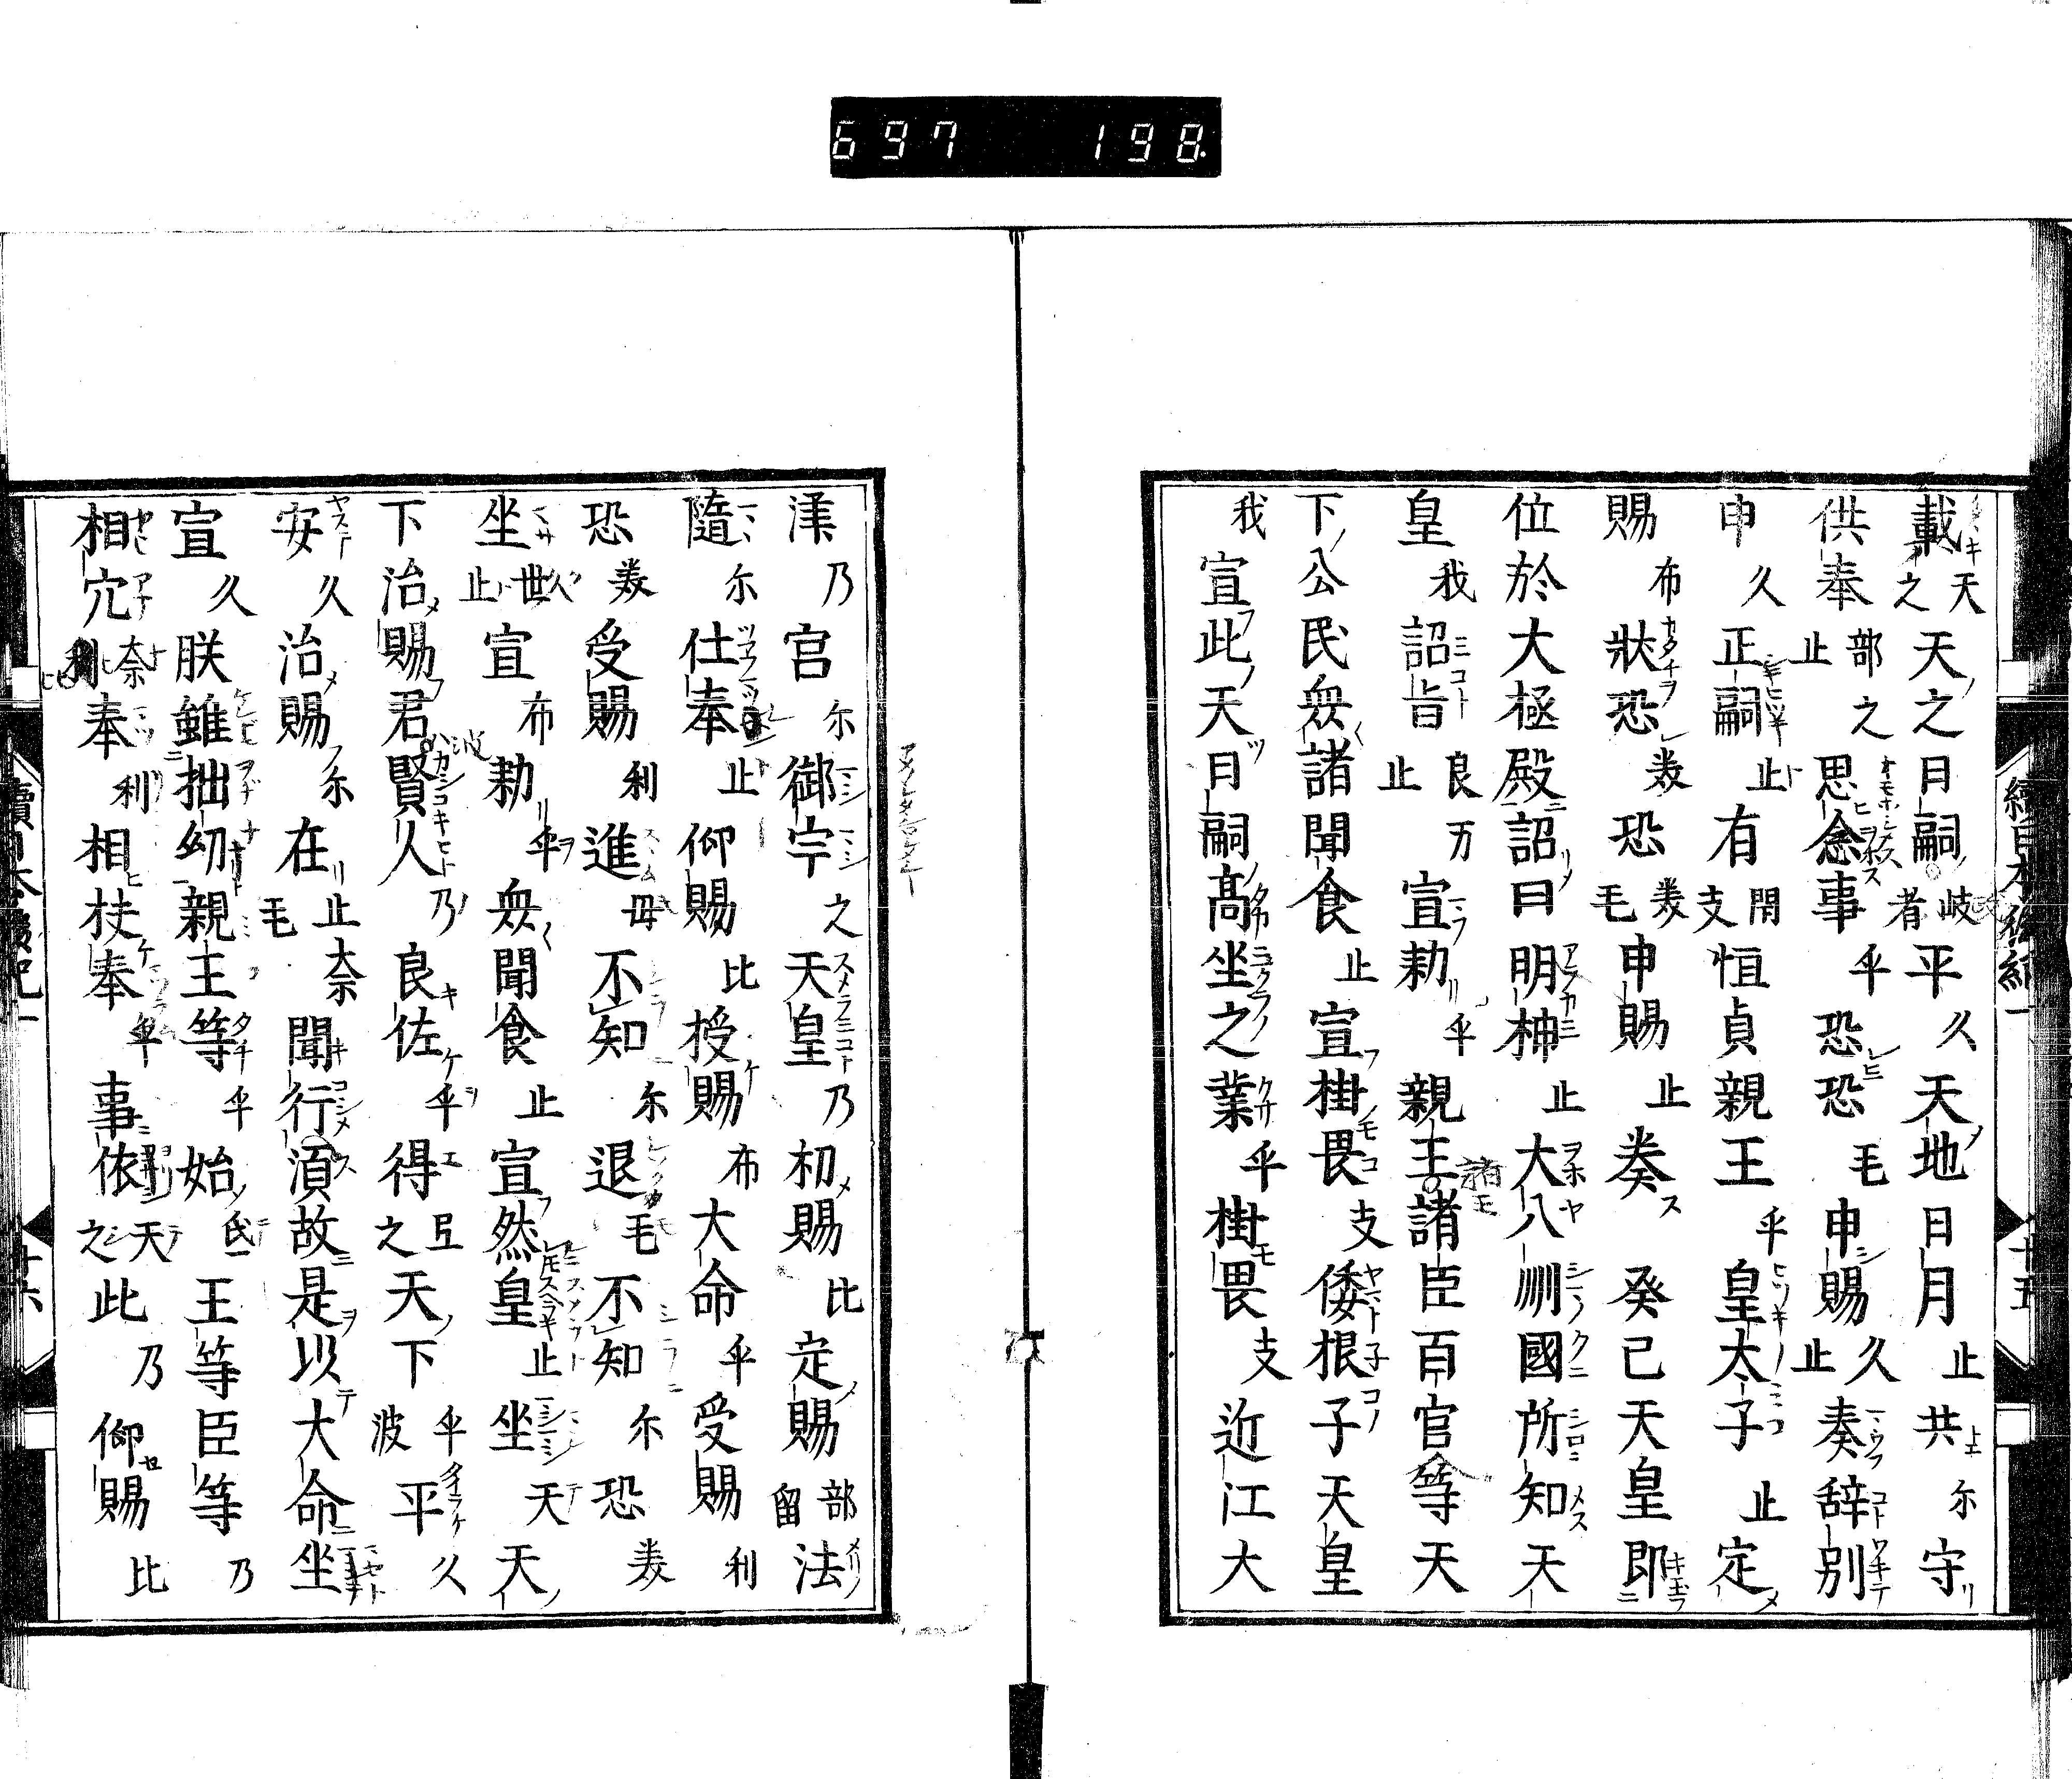 697 198
戴天之天之日嗣岐者平久天地日月止共尓守
供奉部之止思念事乎恐恐毛申賜久止奏辞別
申久正嗣止有閇支恒貞親王乎皇太子止定
賜布狀恐美恐美毛申賜止奏癸巳天皇即
位於大極殿詔曰明神止大八洲國所知天
皇我詔旨良万止宣勅乎親王諸臣百官等天
下公民衆諸聞食止宣掛畏支倭根子天皇
我宣此天日嗣高坐之業乎掛畏支近江大
津乃宮尓御宇之天皇乃初賜比定賜部留法
隨尓仕奉止仰賜比授賜布大命乎受賜利
恐美受賜利進毋不知尓退毛不知尓恐美
坐久世止宣布勅乎衆聞食止宣然皇止坐天天
下治賜君賢人乃良佐乎得弖之天下乎波平久
安久治賜尓在止奈毛聞行須故是以大命坐
宣久朕雖拙幼親王等乎始弖王等臣等乃
相穴奈奉利相扶奉牟事依天之此乃仰賜比
續日本後紀一
十五
續日本後紀一
十六